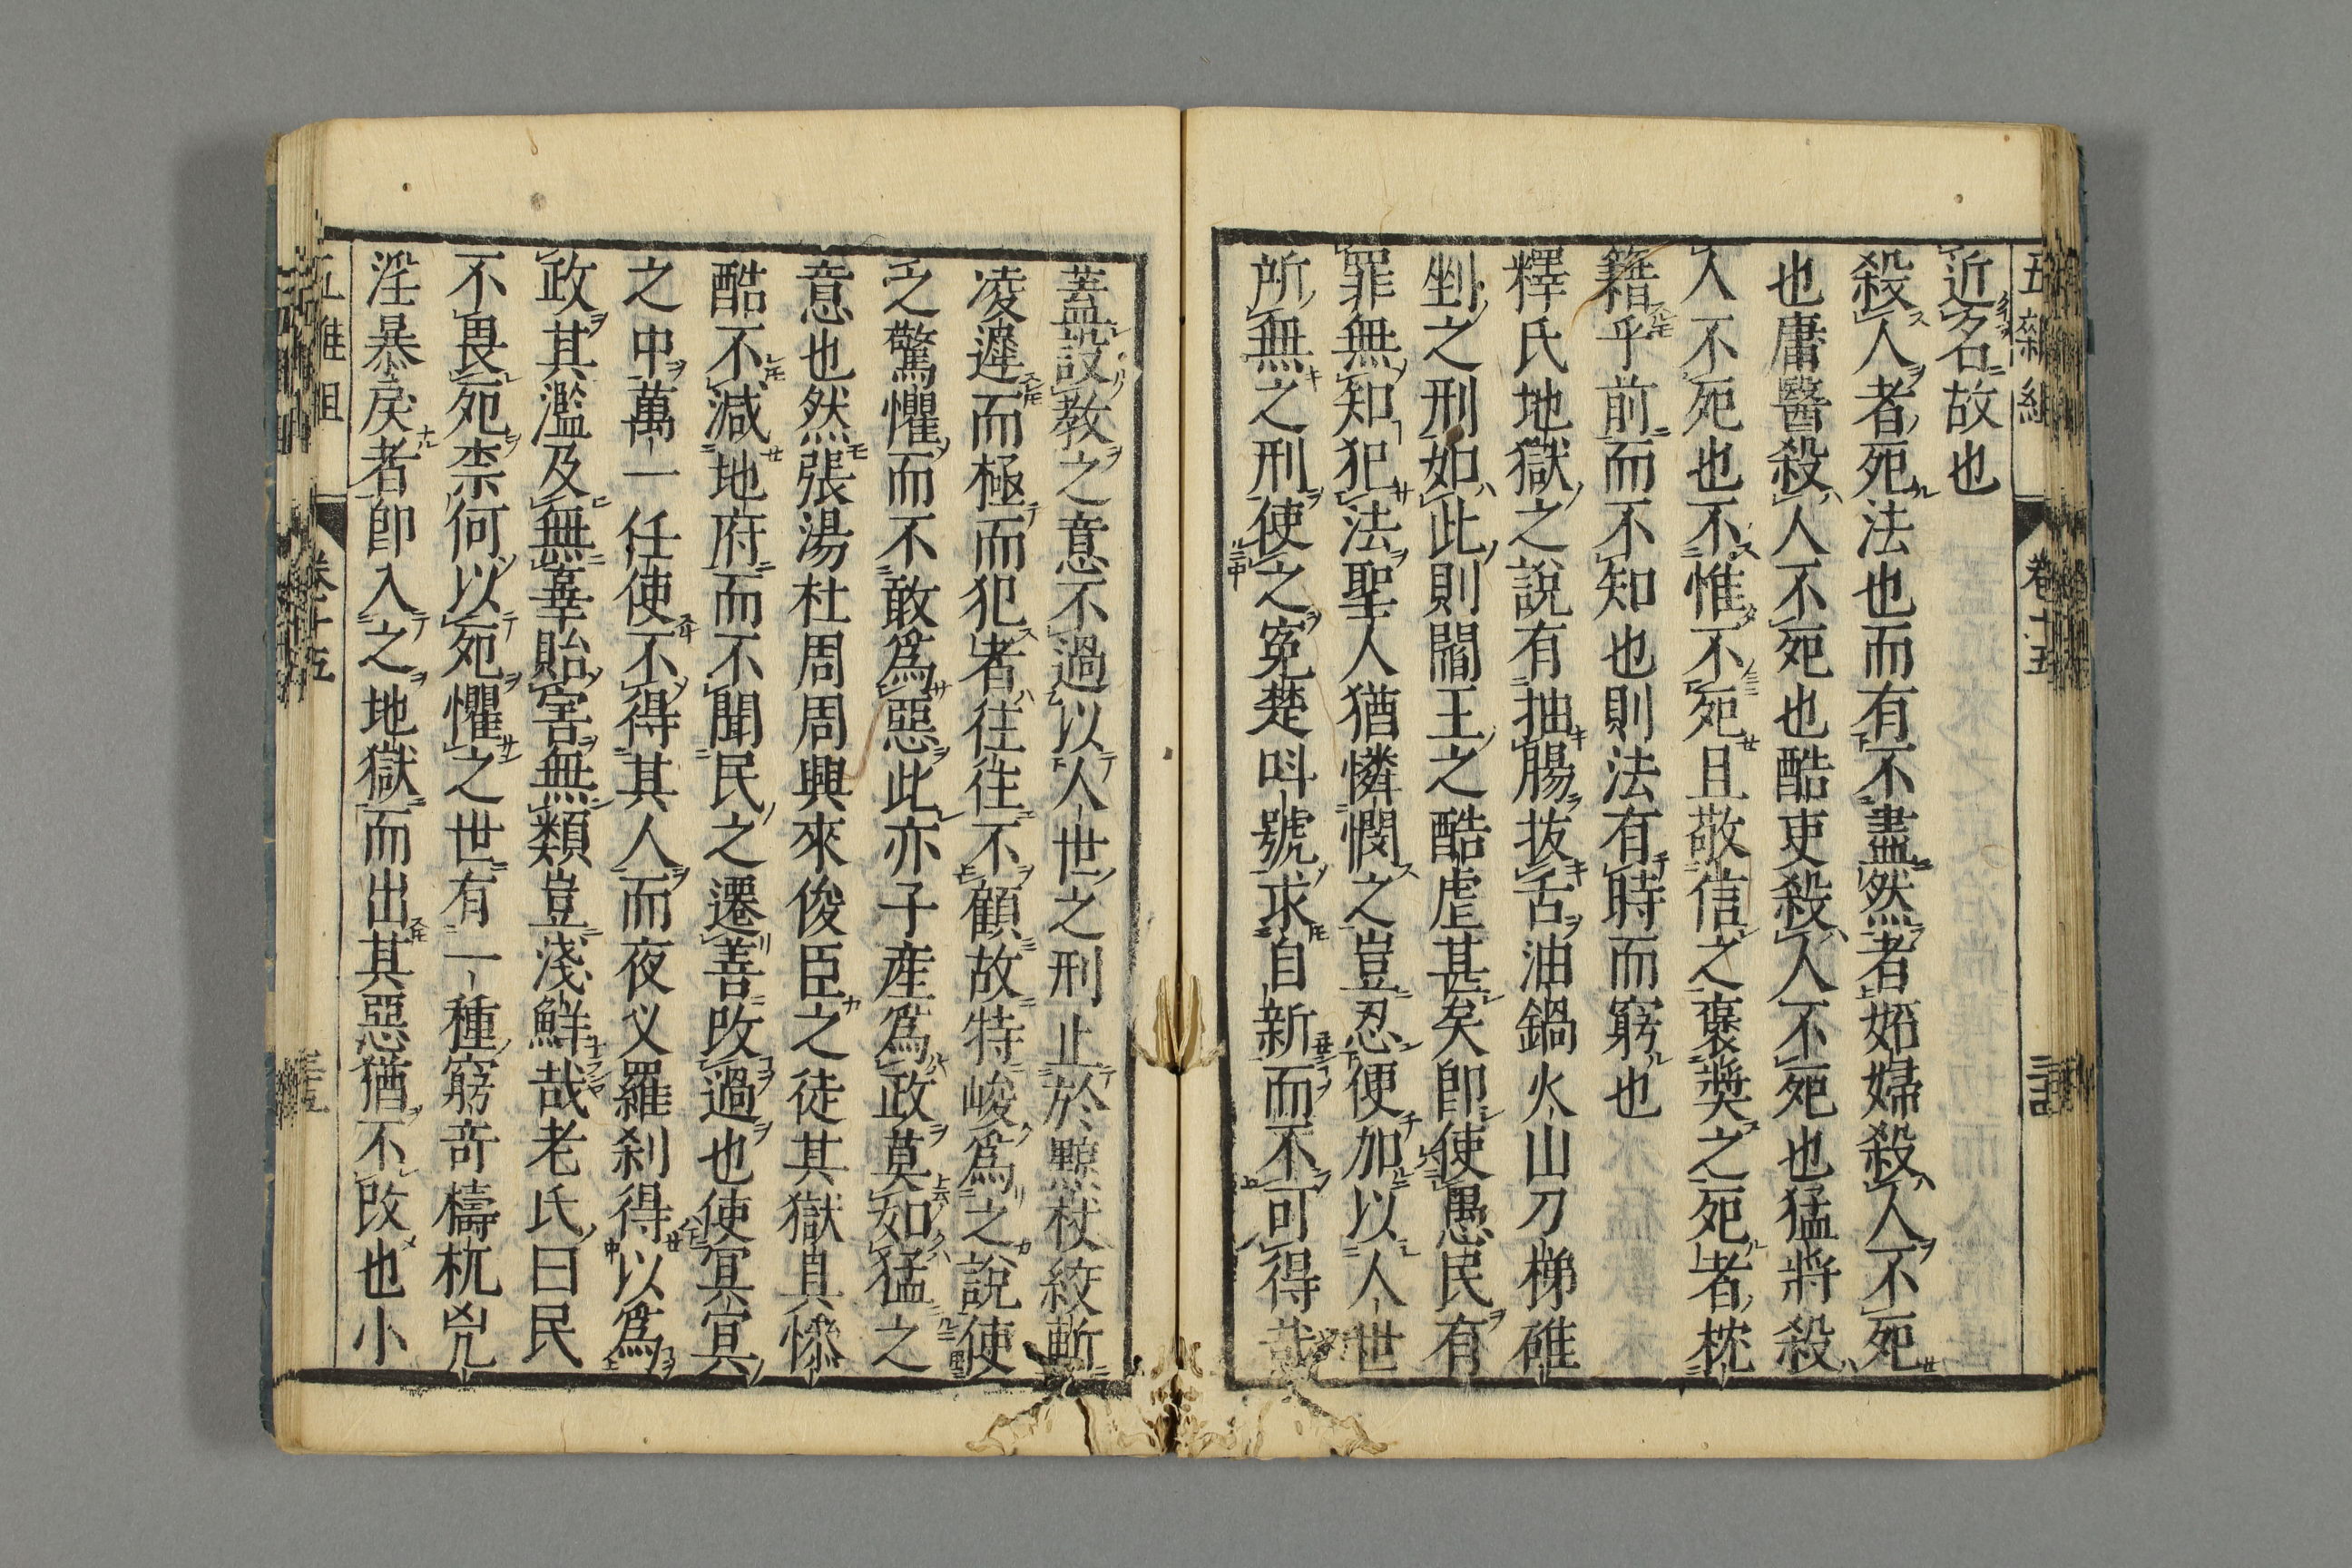 近名故也
殺人者死法也而有不盡然者妬婦殺人不死
也庸醫殺人不死也酷吏殺人不死也猛將殺
人不死也不惟不死且敬信之褒奬之死者枕
籍乎前而不知也則法有時而窮也
釋氏地獄之說有抽腸拔舌油鍋火山刀梯碓
剉之刑如此則閻王之酷虐甚矣卽使愚民有
罪無知犯法聖人猶憐憫之豈忍便加以人世
所無之刑使之寃楚呌號求自新而不可得哉
蓋設教之意不過以人世之刑止於黥杖絞斬
凌遲而極而犯者往往不顧故特峻爲之說使
之驚懼而不敢爲惡此亦子產爲政莫如猛之
意也然張湯杜周周興來俊臣之徒其獄具慘
酷不減地府而不聞民之遷善改過也使冥冥
之中萬一任使不得其人而夜叉羅刹得以爲
政其濫及無辜貽害無類豈淺鮮哉老氏曰民
不畏死柰何以死懼之世有一種窮竒檮杌兇
淫暴戾者卽入之地獄而出其惡猶不改也小
卷十五